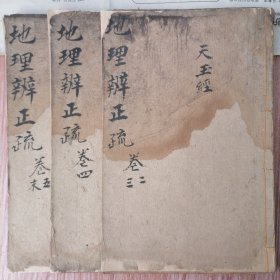 天玉經
地理辨正疏
卷二三
地理辨正疏
卷四
地理辨正疏
卷五末